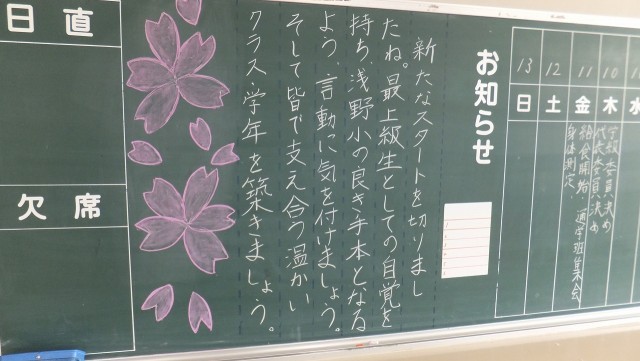 水
木
10
学級委員決め
代表委員決め
金
11
給食開始、通学班集会
身体測定
土
12
日
13
お知らせ
新たなスタートを切りまし
たね。最上級生としての自覚を
持ち、浅野小の良き手本となる
よう、言動に気を付けましょう。
そして皆で支え合う温かい
クラス学年を築きましょう。
日直
欠席